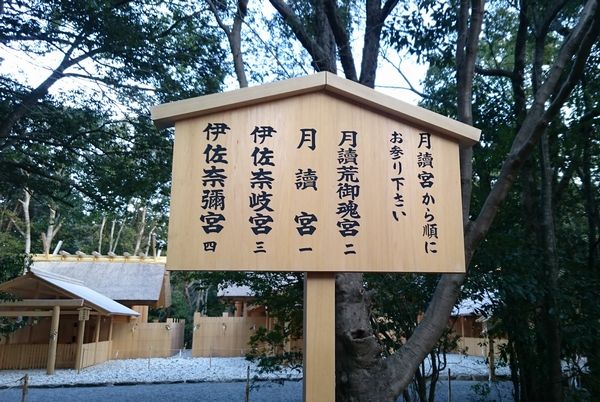 月讀宮から順に
お参り下さい
月讀荒御魂宮 二
月讀宮 一
伊佐奈岐宮 三
伊佐奈彌宮 四